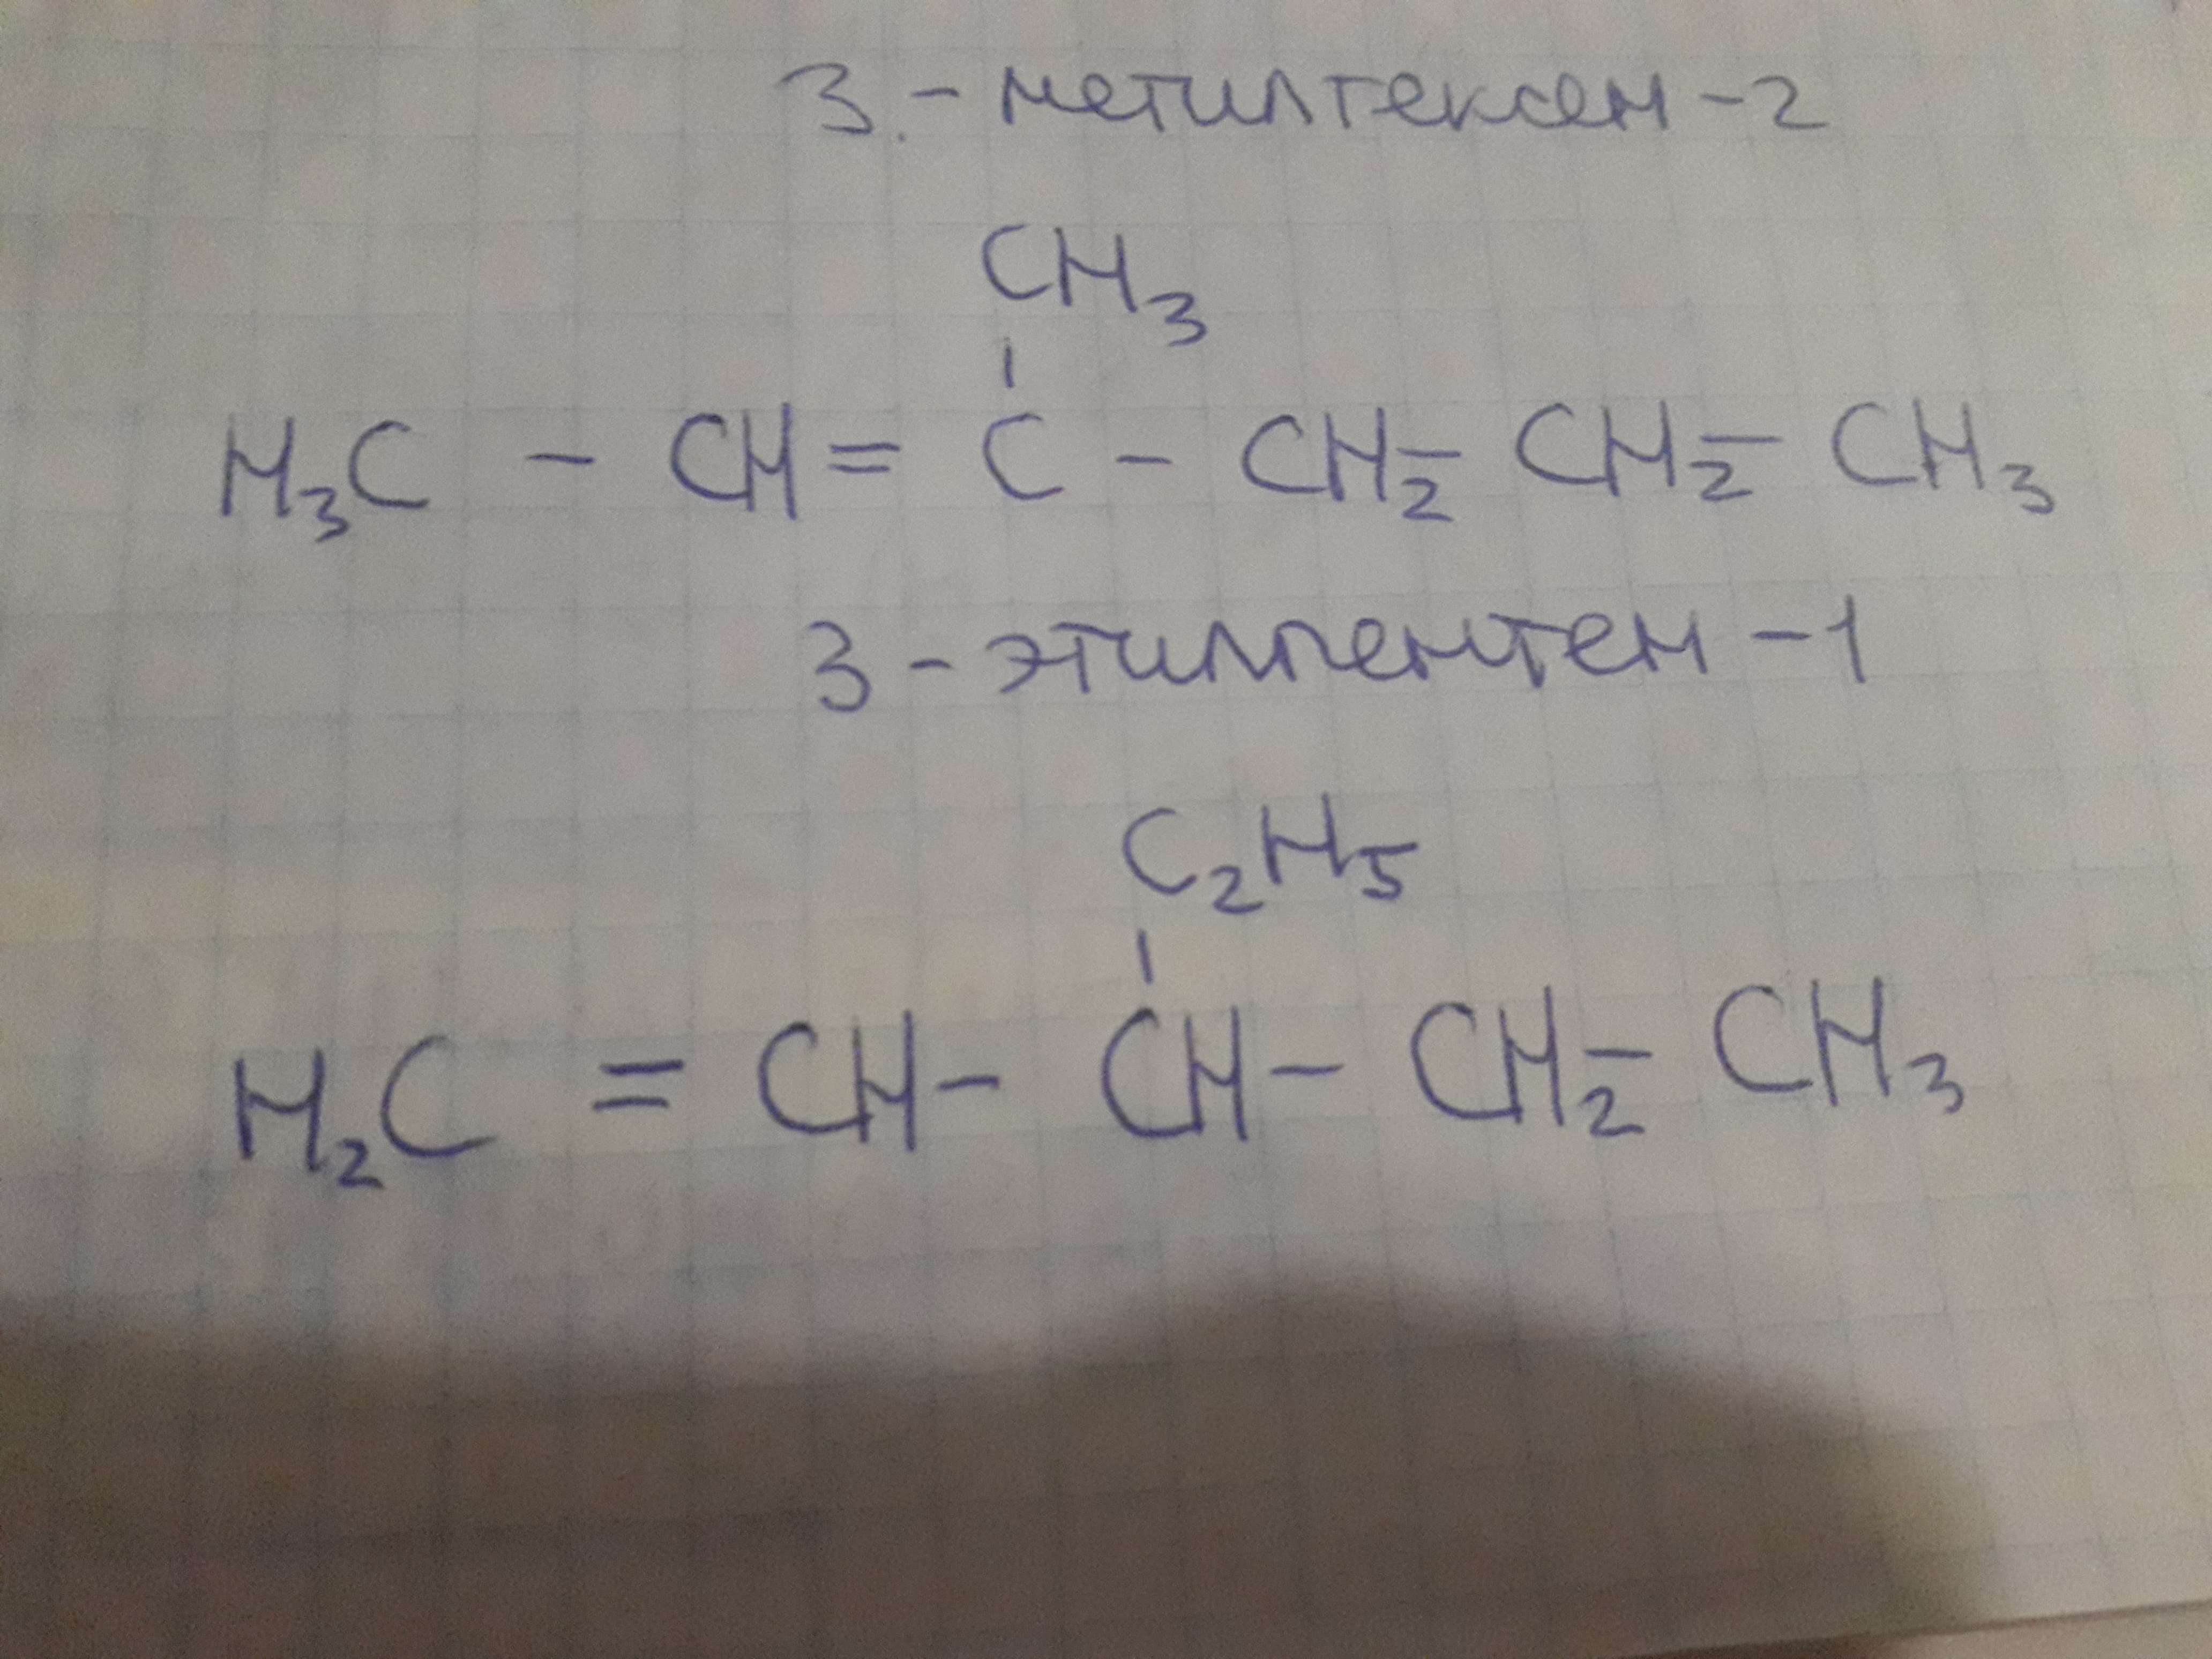 3.-метилгексен-2
CH3
H3C - CH = C - CH2 - CH2 - CH3
3-этилпентен-1
C2H5
H2C = CH - CH - CH2 - CH3